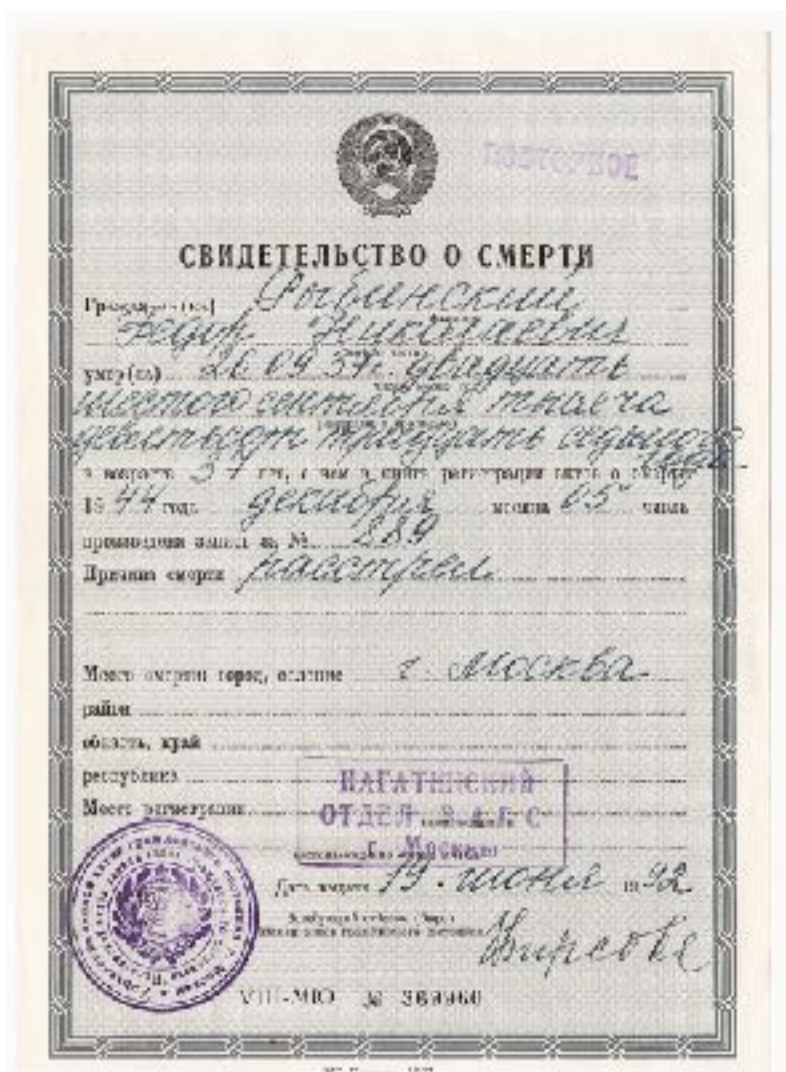 ПОВТОРНОЕ
СВИДЕТЕЛЬСТВО О СМЕРТИ
Гражданин(ка) Рыбинский
Федор Николаевич
умер(ла) 26.09.37г. двадцать
шестого сентября тысяча
девятьсот тридцать седьмого
года
в возрасте 37 лет, о чем в книге регистрации актов о смерти
19 44 года декабря месяца 05 числа
произведена запись за № 889
Причина смерти расстрел
Место смерти: город, селение г. Москва
район
область, край
республика
Место регистрации
НАГАТИНСКИЙ
ОТДЕЛ ЗАГС
г. Москвы
Дата выдачи 19. июня 19 92
VIII-МЮ № 369960